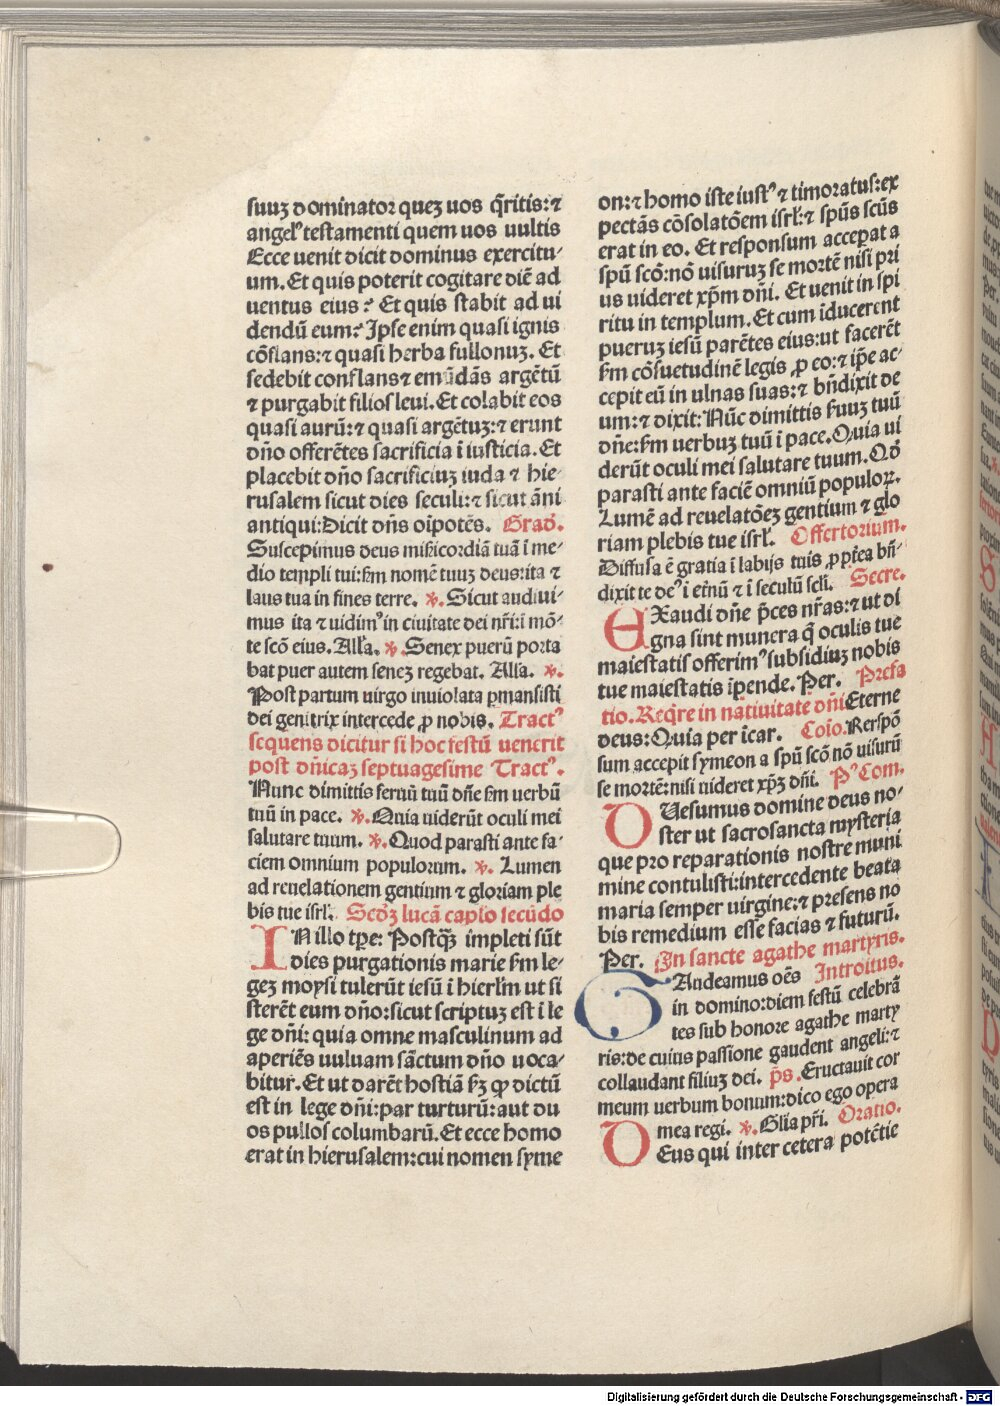 suuꝫ dominator queꝫ uos q̄ritis:⁊
angelꝰ testamenti quem uos uultis
Ecce uenit dicit dominus exercitu-
um. Et quis poterit cogitare diē ad
uentus eius? Et quis stabit ad ui
dendū eum? Ipse enim quasi ignis
cōflans:⁊ quasi herba fullonuꝫ. Et
sedebit conflans ⁊ emūdās argētū
⁊ purgabit filios leui. Et colabit eos
quasi aurū:⁊ quasi argētuꝫ:⁊ erunt
dño offerētes sacrificia ī iusticia. Et
placebit dño sacrificiuꝫ iuda ⁊ hie-
rusalem sicut dies seculi:⁊ sicut āni
antiqui: Dicit dñs oīpotēs. Grad̛.
Suscepimus deus mīẜicordiā tuā ī me-
dio templi tui:ẜm nomē tuuꝫ deus:ita ⁊
laus tua in fines terre. ℣. Sicut audiui-
mus ita ⁊ uidimꝰ in ciuitate dei nr̄i:ī mō-
te scō eius. Allā. ℣. Senex puerū porta
bat puer autem seneꝫ regebat. Allā. ℣.
Post partum uirgo inuiolata ꝑmansisti
dei genitrix intercede ꝓ nobis. Tractꝰ
sequens dicitur si hoc festū uenerit
post dñicaꝫ septuagesime Tractꝰ.
Nunc dimittis seruū tuū dñe ẜm uerbū
tuū in pace. ℣. Quia uiderūt oculi mei
salutare tuum. ℣. Quod parasti ante fa-
ciem omnium populorum. ℣. Lumen
ad reuelationem gentium ⁊ gloriam ple
bis tue isrł. Scd̛ꝫ lucā caplo secūdo
IN illo tꝑe: Postq̄ꝫ impleti sūt
dies purgationis marie ẜm le-
geꝫ moysi tulerūt iesū ī hierłm ut si
sterēt eum dño:sicut scriptuꝫ est ī le
ge dñi: quia omne masculinum ad
aperiēs uuluam sāctum dño uoca-
bitur. Et ut darēt hostiā ẜꝫ ꝙ dictū
est in lege dñi:par turturū:aut du
os pullos columbarū. Et ecce homo
erat in hierusalem:cui nomen syme
on:⁊ homo iste iustꝰ ⁊ timoratus:ex
pectās cōsolatōem isrł:⁊ spūs scūs
erat in eo. Et responsum acceperat a
spū scō:nō uisuruꝫ se mortē nisi pri
us uideret xp̄m dñi. Et uenit in spi
ritu in templum. Et cum īducerent
pueruꝫ iesū parētes eius:ut facerēt
ẜm cōsuetudinē legis ꝓ eo:⁊ ip̄e ac-
cepit eū in ulnas suas:⁊ bñdixit de
um:⁊ dixit: Nūc dimittis ẜuuꝫ tuū
dñe:ẜm uerbuꝫ tuū ī pace. Quia ui
derūt oculi mei salutare tuum. Qd̛
parasti ante faciē omniū populoꝝ.
Lumē ad reuelatōeꝫ gentium ⁊ glo
riam plebis tue isrł. Offertorium.
Diffusa ē gratia ī labijs tuis ꝓpt̄ea bñ-
dixit te deꝰ ī et̄nū ⁊ ī seculū scłi. Secre.
EXaudi dñe p̄ces nr̄as:⁊ ut di
gna sint munera q̄ oculis tue
maiestatis offerimꝰ subsidiuꝫ nobis
tue maiestatis īpende. Per. Prefa
tio. Reqͥre in natiuitate dñi Eterne
deus: Quia per īcar. Cōio. Rerspō
sum accepit symeon a spū scō nō uisurū
se mortē:nisi uideret xp̄ꝫ dñi. Pꝰ Com.
QUesumus domine deus no-
ster ut sacrosancta mysteria
que pro reparationis nostre muni
mine contulisti:intercedente beata
maria semper uirgine:⁊ presens no
bis remedium esse facias ⁊ futurū.
Per. In sancte agathe martyris.
GAudeamus oēs Introitus.
in domino:diem festū celebrā
tes sub honore agathe marty
ris:de cuius passione gaudent angeli:⁊
collaudant filiuꝫ dei. p̄s. Eructauit cor
meum uerbum bonum:dico ego opera
mea regi. ℣. Glīa pr̄i. Oratio.
DEus qui inter cetera potētie
Digitalisierung gefördert durch die Deutsche Forschungsgemeinschaft - DFG